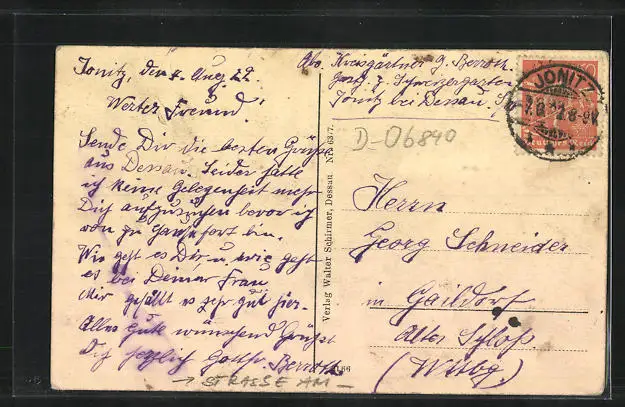 Jonitz, den 7. Aug. 22.
Werter Freund!
Sende Dir die besten Grüße
aus Dessau. Leider hatte
ich keine Gelegenheit mehr
Dich aufzusuchen bevor ich
von zu Hause fort bin.
Wie geht es Dir u. wie geht
es bei Deiner Frau
Mir gefällt es sehr gut hier.
Alles Gute wünschend Grüßt
Dich herzlich Gottfr. Berroth
→ STRASSE AM –
Verlag Walter Schirmer, Dessau
Abs. Kreisgärtner G. Berroth
z. Schweizergarten
Jonitz bei Dessau
JONITZ
D-06840
Herrn
Georg Schneider
in Gaildorf
Altes Schloß
(Wttbg.)